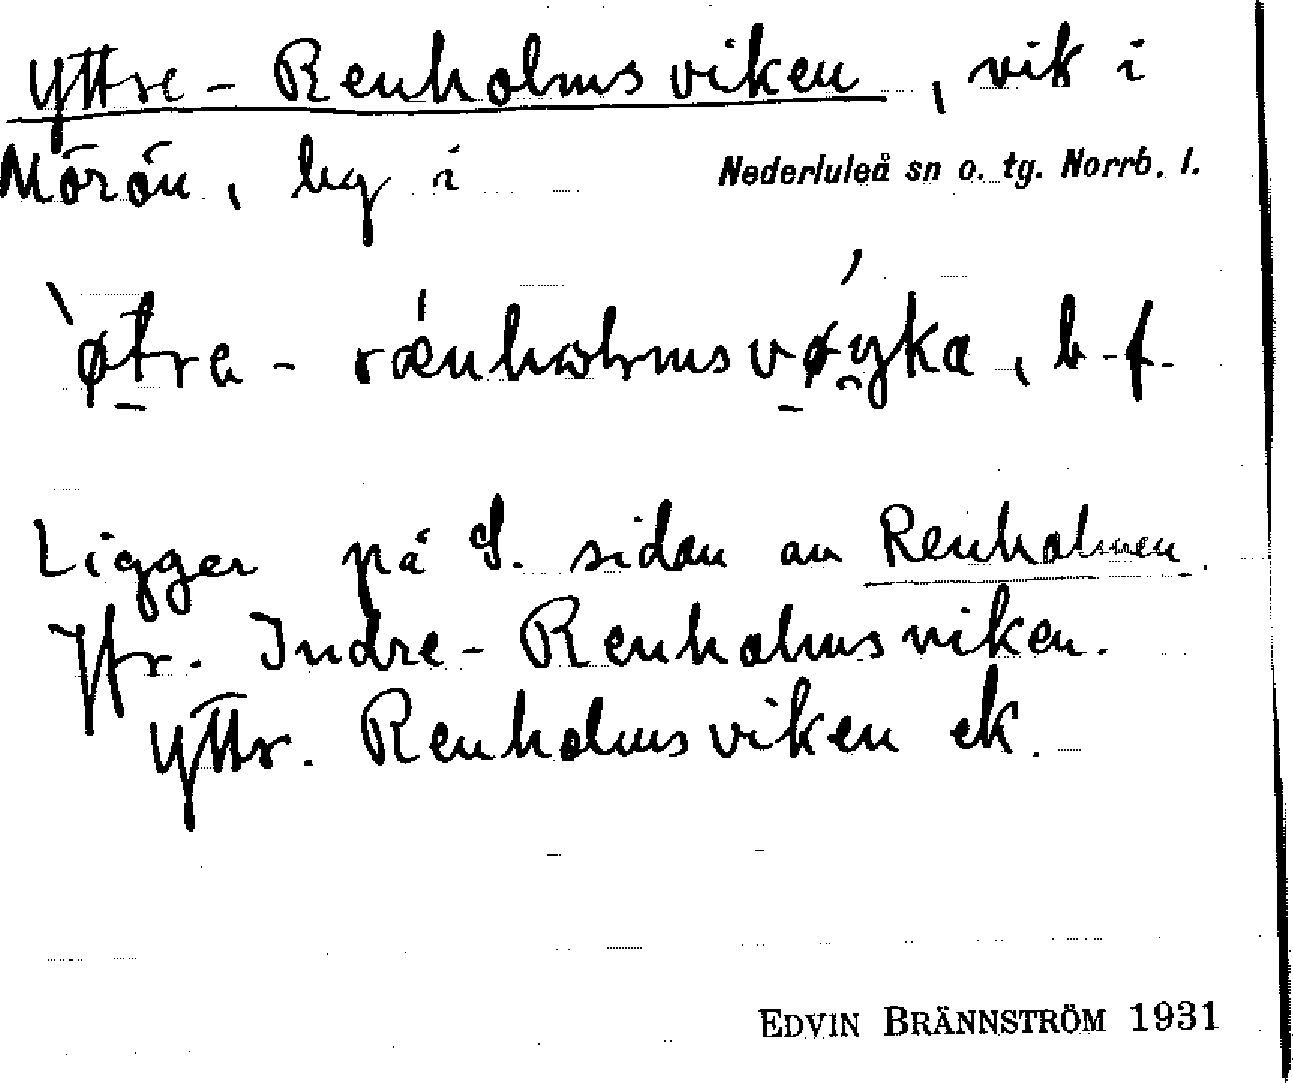 Yttre-Renholmsviken, vik i
Mörön, by i Nederluleå sn o. tg. Norrb. l.
`øtrɐ - rǽnhɷlmsvǿy̯ka, b.f.
Ligger på S. sidan av Renholmen.
Jfr. Indre-Renholmsviken.
Yttr. Renholmsviken ek.
EDVIN BRÄNNSTRÖM 1931